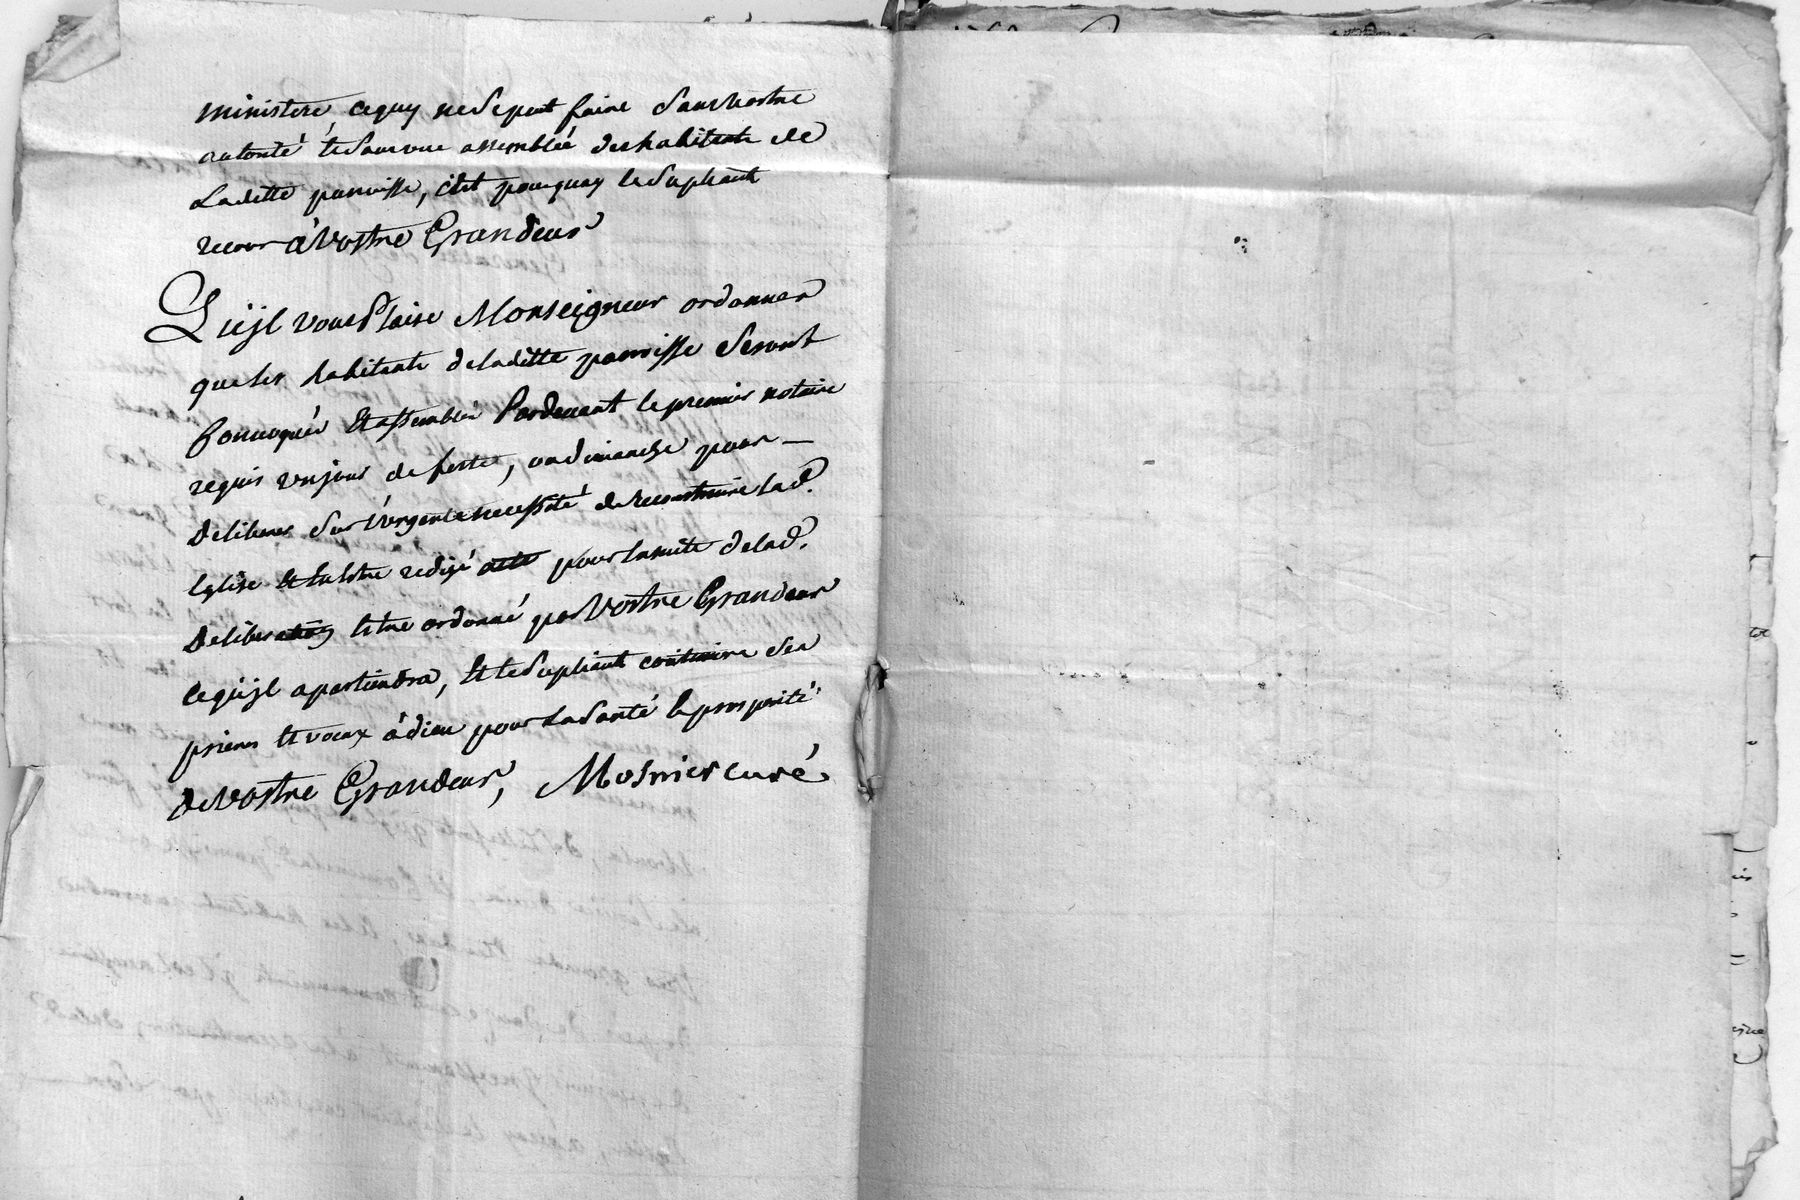 ministere, ce quy ne se peut faire sans vostre
autorité et sans une assemblée des habitants de
Laditte paroisse, c'est pourquoy le supliant
recour à Vostre Grandeur
Qu'jl vous Plaise Monseigneur ordonner
que les habitants de laditte paroisse seront
Convoqués et assemblés Pardevant le premier notaire
requis un jour de feste, ou dimanche pour
Deliberer sur l'urgente necessité de reconstruire lad.
Eglise et en estre redigé acte pour ensuite de lad.
Deliberation estre ordonné par Vostre Grandeur
ce qu'jl apartiendra, et le supliant continura ses
prieres et voeux à dieu pour la santé et prosperité
de Vostre Grandeur, Mosnier curé